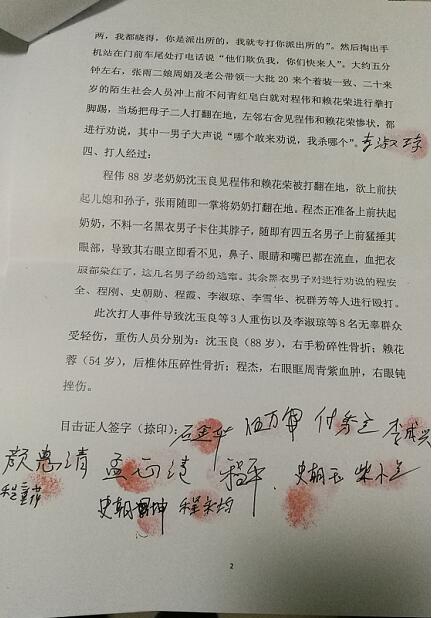 两，我都晓得，你是派出所的，我就专打你派出所的”。然后掏出手
机站在门前车尾处打电话说“他们欺负我，你们快来人”。大约五分
钟左右，张雨二娘周娟及老公带领一大批 20 来个着装一致、二十来
岁的陌生社会人员冲上前不问青红皂白就对程伟和赖花荣进行拳打
脚踢，当场把母子二人打翻在地，左邻右舍见程伟和赖花荣惨状，都
进行劝说，其中一男子大声说“哪个敢来劝说，我杀哪个”。
四、打人经过：
程伟 88 岁老奶奶沈玉良见程伟和赖花荣被打翻在地，欲上前扶
起儿媳和孙子，张雨随即一掌将奶奶打翻在地。程杰正准备上前扶起
奶奶，不料一名黑衣男子卡住其脖子，随即有四五名男子上前猛捶其
眼部，导致其右眼立即看不见，鼻子、眼睛和嘴巴都在流血，血把衣
服都染红了，这几名男子纷纷逃窜。其余黑衣男子对进行劝说的程安
全、程刚、史朝勋、程霞、李淑琼、李雪华、祝群芳等人进行殴打。
此次打人事件导致沈玉良等 3 人重伤以及李淑琼等 8 名无辜群众
受轻伤，重伤人员分别为：沈玉良（88 岁），右手粉碎性骨折；赖花
蓉（54 岁），后椎体压碎性骨折；程杰，右眼眶周青紫血肿，右眼钝
挫伤。
目击证人签字（捺印）：
2